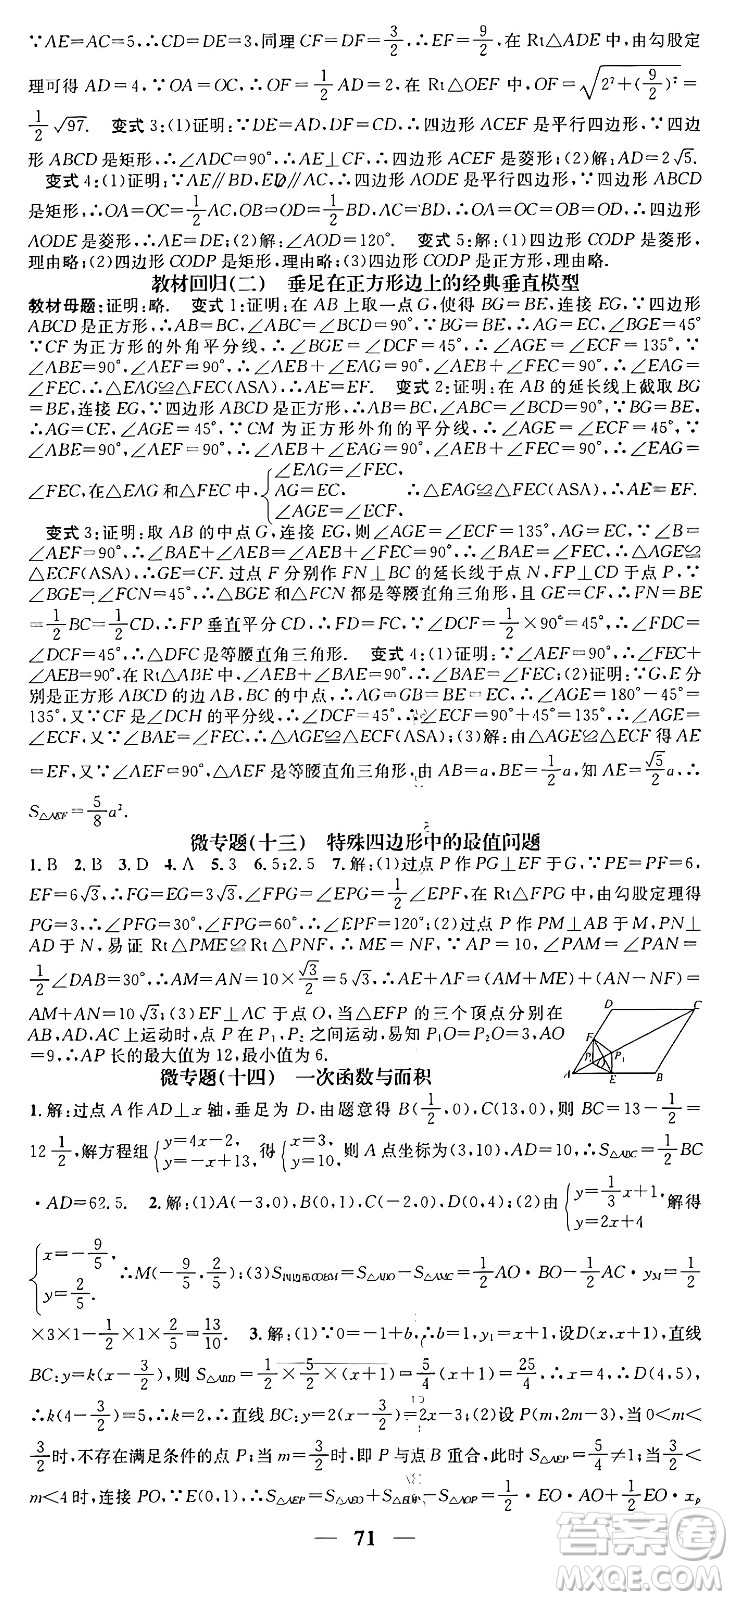 ∵AE=AC=5,∴CD=DE=3,同理 CF=DF=3/2,∴EF=9/2,在 Rt△ADE 中,由勾股定
理可得 AD=4,∵OA=OC,∴OF=1/2AD=2,在 Rt△OEF 中,OF=√(2²+(9/2)²=
1/2√97. 变式 3:(1)证明:∵DE=AD,DF=CD,∴四边形 ACEF 是平行四边形,∵四边
形 ABCD 是矩形,∴∠ADC=90°,∴AE⊥CF,∴四边形 ACEF 是菱形;(2)解:AD=2√5.
变式 4:(1)证明:∵AE∥BD,ED∥AC,∴四边形 AODE 是平行四边形,∵四边形 ABCD
是矩形,∴OA=OC=1/2AC,OB=OD=1/2BD,AC=BD,∴OA=OC=OB=OD,∴四边形
AODE 是菱形,∴AE=DE;(2)解:∠AOD=120°. 变式 5:(1)解:四边形 CODP 是菱形,
理由略;(2)四边形 CODP 是矩形,理由略;(3)四边形 CODP 是正方形,理由略.
教材回归(二) 垂足在正方形边上的经典垂直模型
教材母题:证明:略. 变式 1:证明:在 AB 上取一点 G,使得 BG=BE,连接 EG,∵四边形
ABCD 是正方形,∴∠B=∠BCD=∠DCP=90°,∵BG=BE,∴∠BGE=∠BEG=45°
∵CF 为正方形的外角平分线,∴∠BGE=∠DCF=45°,∴∠AGE=∠ECF=135°,∵∠B
=∠ABE=90°,∴∠BAE+∠AEB=90°,∵∠AEF=90°,∴∠AEB+∠FEC=90°,∴∠BAE
=∠FEC,∴△EAG≌△FEC(ASA),∴AE=EF. 变式 2:证明:在 AB 的延长线上截取 BG
=BE,连接 EG,∵四边形 ABCD 是正方形,∴AB=BC,∠ABC=∠BCD=90°,∵BG=BE,
∴AG=CE,∠AGE=45°,∵CM 为正方形外角的平分线,∴∠ECF=45°,∴∠AGE=
∠ECF,∵∠ABE=90°,∠AEF=90°,∴∠AEB+∠BAE=90°,∠AEB+∠FEC=90°,∴∠BAE=
∠FEC,在△EAG 和△FEC 中,{∠EAG=∠FEC, AG=EC, ∠AGE=∠ECF, ∴△EAG≌△FEC(ASA),∴AE=EF.
变式 3:证明:取 AB 的中点 G,连接 EG,则∠AGE=∠ECF=135°,又∵∠B=
∠AEF=90°,∴∠BAE+∠AEB=∠AEB+∠FEC=90°,∴∠BAE=∠FEC,∴△AGE≌
△ECF(ASA),∴GE=CF. 过点 F 分别作 FN⊥BC 的延长线于点 N,FP⊥CD 于点 P,∵
∠BGE=∠FCN=45°,∴△BGE 和△FCN 都是等腰直角三角形,且 GE=CF,∴FN=BE
=1/2BC=1/2CD,∴FP 垂直平分 CD,∴FD=FC,∵∠DCF=1/2×90°=45°,∴∠FDC=
∠DCF=45°,∴△DFC 是等腰直角三角形. 变式 4:(1)证明:∵∠AEF=90°,∴∠FEC+
∠AEB=90°,在 Rt△ABE 中,∠AEB+∠BAE=90°,∴∠BAE=∠FEC;(2)证明:∵G,E 分
别是正方形 ABCD 的边 AB,BC 的中点,∴AG=GB=BE=EC,且∠AGE=180°-45°=
135°,又∵CF 是∠DCH 的平分线,∴∠DCF=45°,∠ECF=90°+45°=135°,∴∠AGE=
∠ECF,又∵∠BAE=∠FEC,∴△AGE≌△ECF(ASA);(3)解:由△AGE≌△ECF 得 AE
=EF,又∵∠AEF=90°,∴△AEF 是等腰直角三角形,由 AB=a,BE=1/2a,知 AE=√5/2a,∴
S△AEF=5/8a².
微专题(十三) 特殊四边形中的最值问题
1. B 2. B 3. D 4. A 5. 3 6. 5;2.5 7. 解:(1)过点 P 作 PG⊥EF 于点 G,∵PE=PF=6,
EF=6√3,∴FG=EG=3√3,∠FPG=∠EPG=1/2∠EPF,在 Rt△FPG 中,由勾股定理得
PG=3,∴∠PFG=30°,∠FPG=60°,∴∠EPF=120°;(2)过点 P 作 PM⊥AB 于 M,PN⊥
AD 于 N,易证 Rt△PME≌Rt△PNF,∴ME=NF,∵AP=10,∠PAM=∠PAN=
1/2∠DAB=30°,∴AM=AN=10×√3/2=5√3,∴AE+AF=(AM+ME)+(AN-NF)=
AM+AN=10√3;(3)EF⊥AC 于点 O,当△EFP 的三个顶点分别在
AB,AD,AC 上运动时,点 P 在 P₁,P₂ 之间运动,易知 P₁O=P₂O=3,AO
=9,∴AP 长的最大值为 12,最小值为 6.
D C F P₂ P₁ A E B
微专题(十四) 一次函数与面积
1. 解:过点 A 作 AD⊥x 轴,垂足为 D,由题意得 B(1/2,0),C(13,0),则 BC=13-1/2=
12 1/2,解方程组{y=4x-2, y=-x+13, 得{x=3, y=10, 则 A 点坐标为(3,10),AD=10,∴S△ABC=1/2BC
·AD=62.5. 2. 解:(1)A(-3,0),B(0,1),C(-2,0),D(0,4);(2)由{y=1/3x+1, y=2x+4 解得
{x=-9/5, y=2/5. ∴M(-9/5,2/5);(3)S四边形COBM=S△ABO-S△AMC=1/2AO·BO-1/2AC·yM=1/2
×3×1-1/2×1×2/5=13/10. 3. 解:(1)∵0=-1+b,∴b=1,y₁=x+1,设D(x,x+1),直线
BC:y=k(x-3/2),则 S△ABD=1/2×5/2×(x+1)=5/4(x+1)=25/4,∴x+1=5,x=4,∴D(4,5),
∴k(4-3/2)=5,∴k=2,∴直线 BC:y=2(x-3/2)=2x-3;(2)设 P(m,2m-3),当 0<m<
3/2时,不存在满足条件的点 P;当 m=3/2时,即 P 与点 B 重合,此时 S△AEP=5/4≠1;当3/2<
m<4 时,连接 PO,∵E(0,1),∴S△AEP=S△AEO+S△EOP-S△AOP=1/2·EO·AO+1/2·EO·xP
71
答案圈